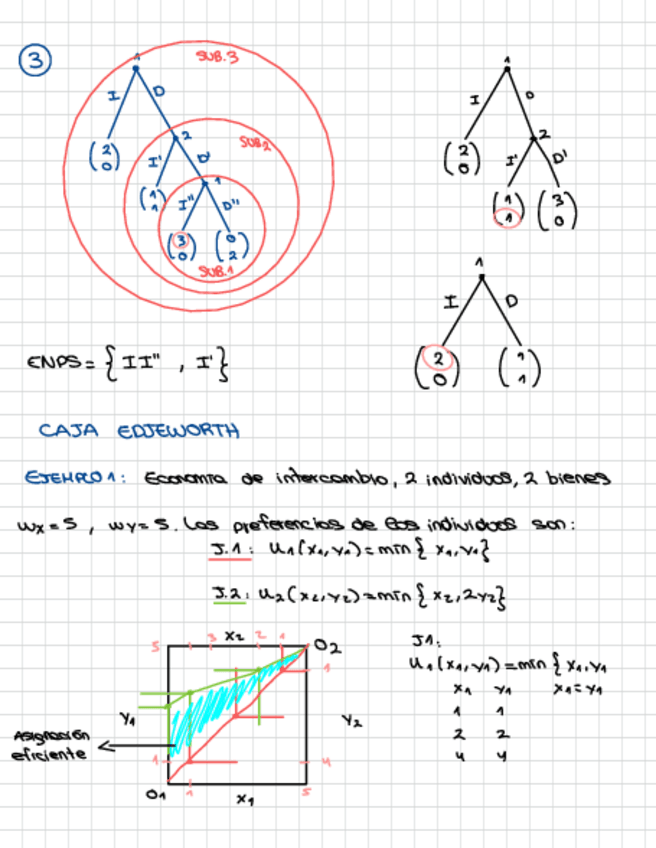 3
SUB.3
1
I D
2
0
2
SUB.2
I' D'
1
1
1
I" D"
3
0
0
2
SUB.1
1
I D
2
0
2
I' D'
1
1
3
0
1
I D
2
0
1
1
ENPS = { II" , I' }
CAJA EDJEWORTH
EJEMPLO 1: Economía de intercambio, 2 individuos, 2 bienes
wx = 5 , wy = 5. Las preferencias de los individuos son:
J.1: u1(x1,y1) = min { x1, y1}
J.2: u2(x2,y2) = min { x2, 2y2}
5 3 x2 2 1 O2
1
y1 y2
Asignación
eficiente
1 4
O1 1 x1 5
J1:
u1(x1,y1) = min { x1, y1
x1 y1 x1 = y1
1 1
2 2
4 4